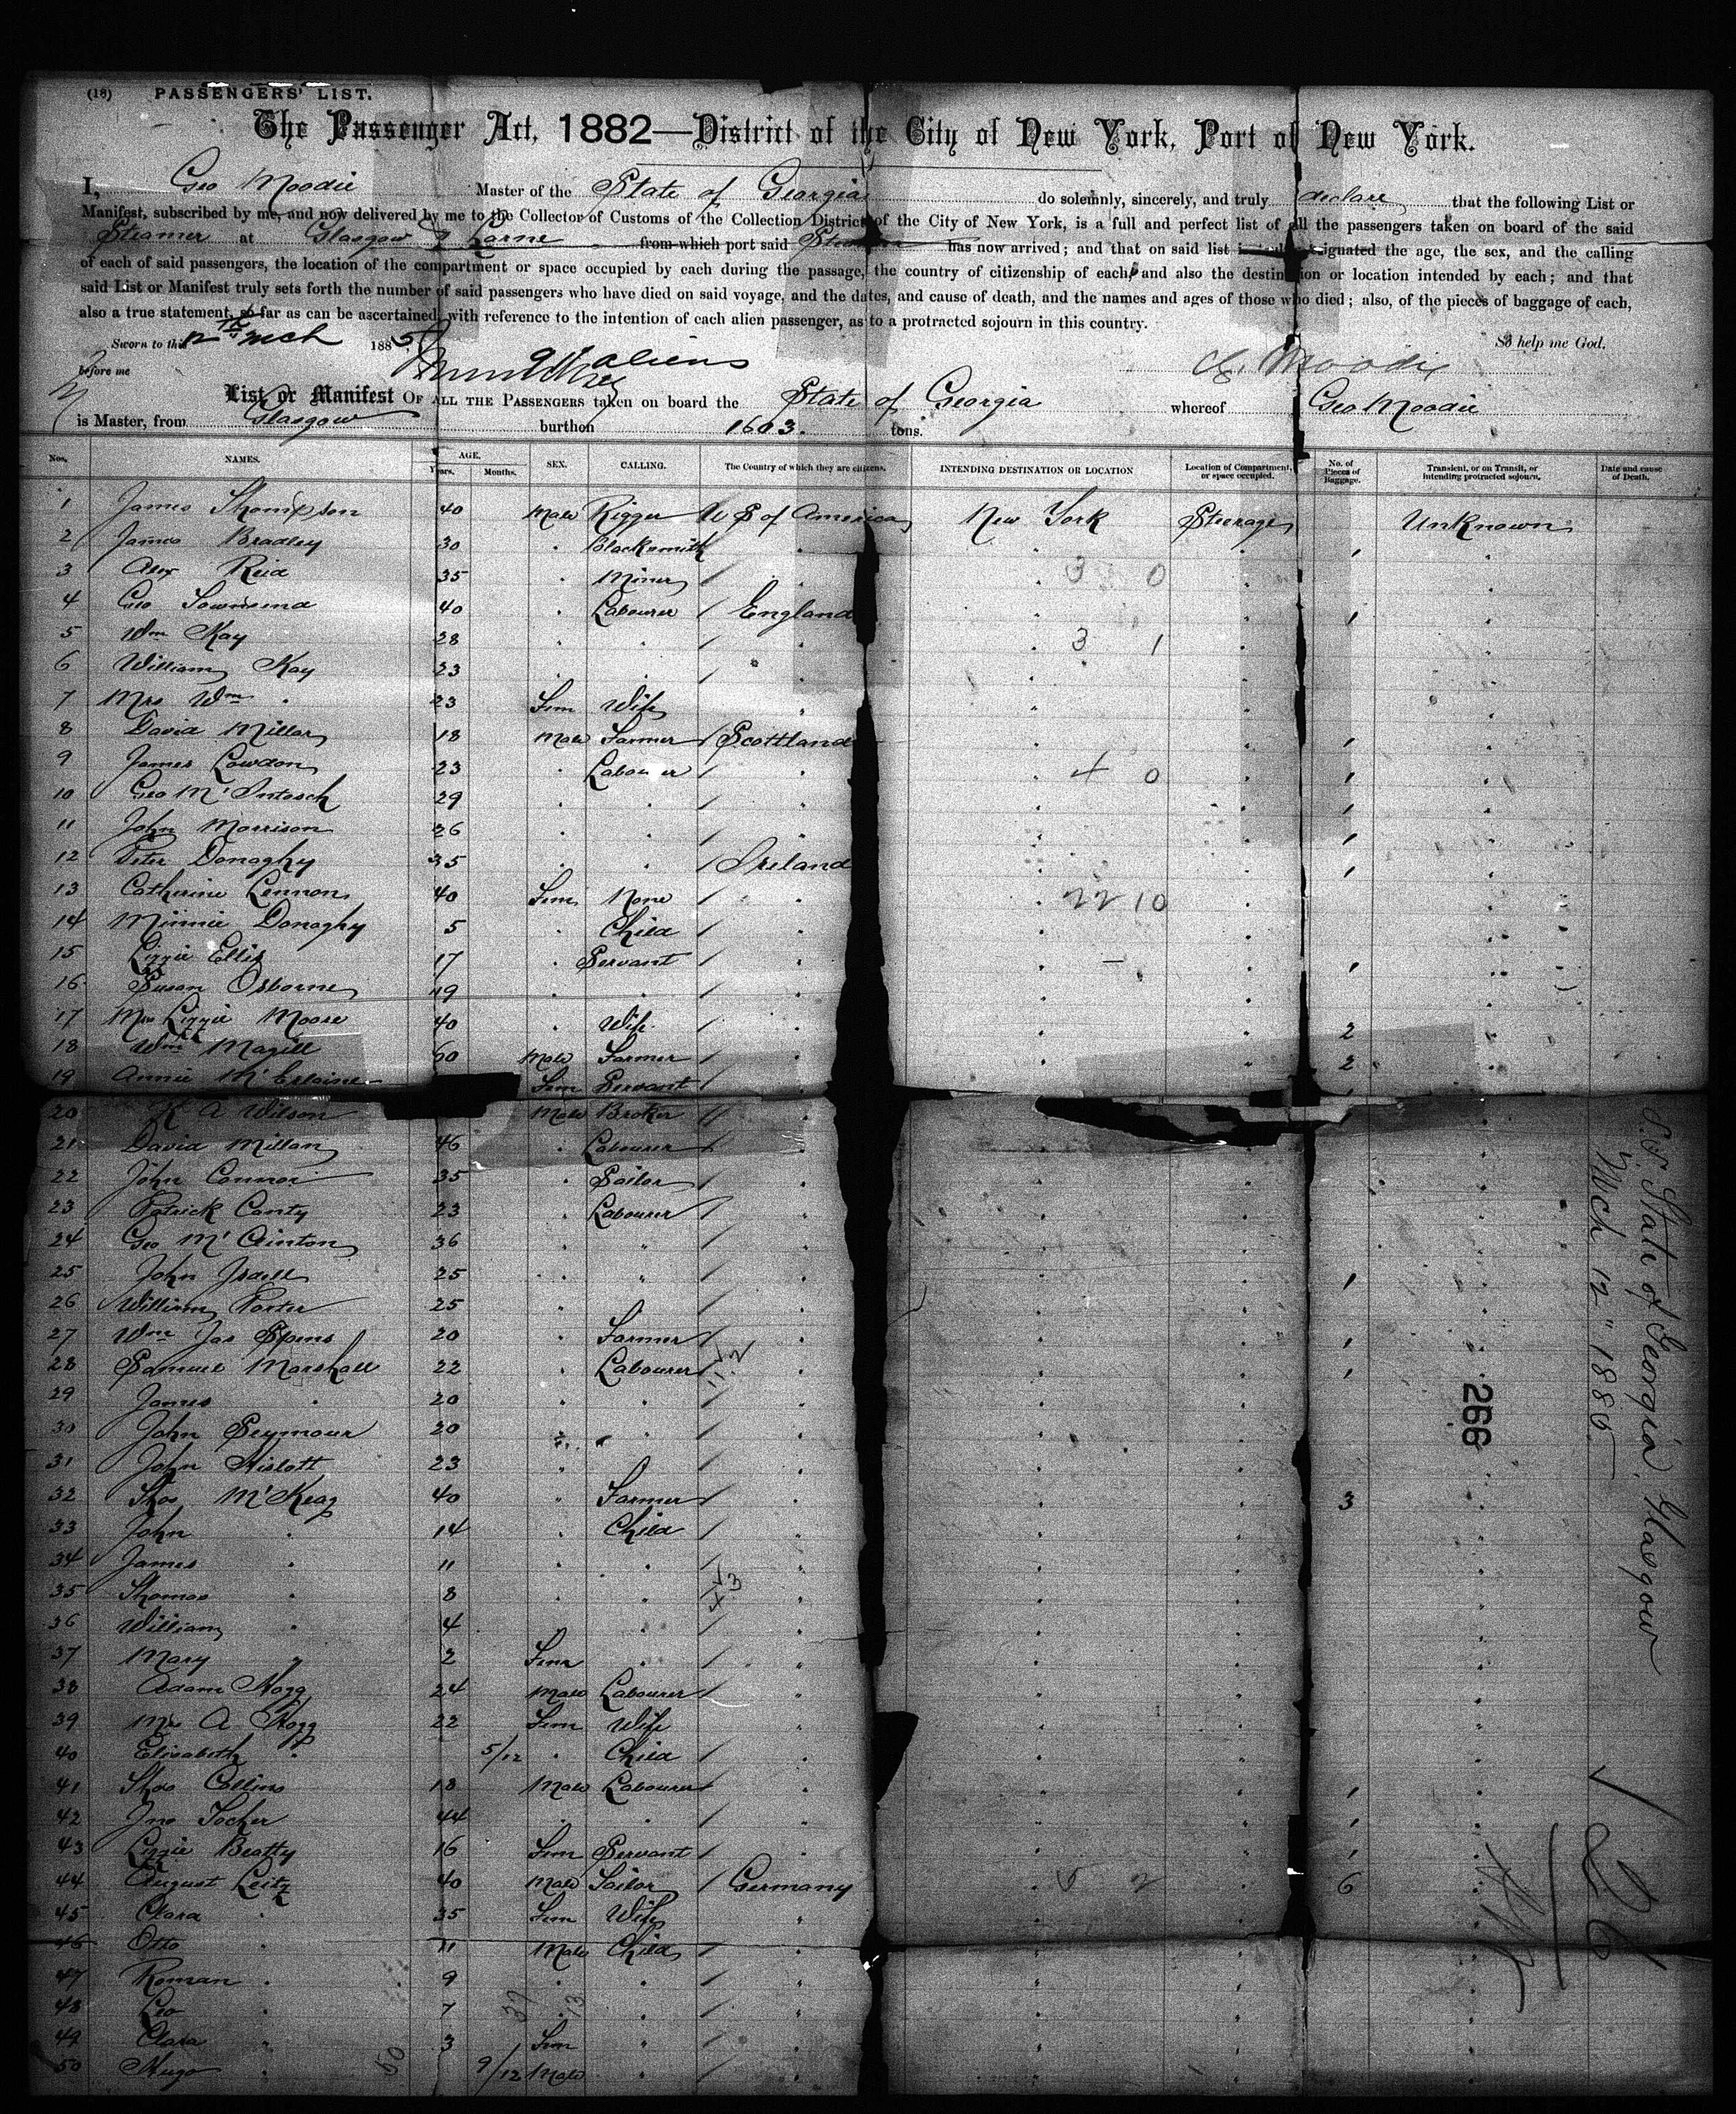 (18) PASSENGERS' LIST.
The Passenger Act, 1882—District of the City of New York, Port of New York.
I, Geo Moodie Master of the State of Georgia do solemnly, sincerely, and truly declare that the following List or
Manifest, subscribed by me, and now delivered by me to the Collector of Customs of the Collection District of the City of New York, is a full and perfect list of all the passengers taken on board of the said
Steamer at Glasgow & Larne from which port said Steamer has now arrived; and that on said list is designated the age, the sex, and the calling
of each of said passengers, the location of the compartment or space occupied by each during the passage, the country of citizenship of each, and also the destination or location intended by each; and that
said List or Manifest truly sets forth the number of said passengers who have died on said voyage, and the dates, and cause of death, and the names and ages of those who died; also, of the pieces of baggage of each,
also a true statement, so far as can be ascertained, with reference to the intention of each alien passenger, as to a protracted sojourn in this country.
Sworn to this 12th Mch 1885 So help me God.
before me aliens G. Moodie
List or Manifest OF ALL THE PASSENGERS taken on board the State of Georgia whereof Geo Moodie
is Master, from Glasgow burthen 1603. tons.
Nos. NAMES. AGE. Years. Months. SEX. CALLING. The Country of which they are citizens. INTENDING DESTINATION OR LOCATION Location of Compartment, or space occupied. No. of Pieces of Baggage. Transient, or on Transit, or intending protracted sojourn. Date and cause of Death.
1 James Thompson 40 Male Rigger U S of America New York Steerage Unknown
2 James Bradley 30 " Blacksmith " " " 1 "
3 Alex Reid 35 " Miner " " 3 0 " "
4 Geo Townsend 40 " Labourer England " " 1 "
5 Wm Kay 28 " " " " 3 1 " "
6 William Kay 23 " " " " " "
7 Mrs Wm " 23 Fem Wife " " " "
8 David Millar 18 Male Farmer Scottland " " 1 "
9 James Lowdon 23 " Labourer " " 4 0 " 1 "
10 Geo McIntosch 29 " " " " " 1 "
11 John Morrison 26 " " " " " 1 "
12 Peter Donaghy 35 " " Ireland " " 1 "
13 Catherine Lennon 40 Fem None " " 22 10 " "
14 Minnie Donaghy 5 " Child " " " "
15 Lizzie Ellis 17 " Servant " " " 1 "
16 Susan Osborne 19 " " " " " "
17 Mrs Lizzie Moore 40 " Wife " " " 2 "
18 Wm Magill 60 Male Farmer " " " 2 "
19 Annie Fem Servant
20 A Wilson Male Broker
21 David Millan 46 " Labourer " " " "
22 John Connor 35 " Sailor " " " "
23 Patrick Canty 23 " Labourer " " " "
24 Geo McClinton 36 " " " " " "
25 John Isdell 25 " " " " " 1 "
26 William Porter 25 " " " " " "
27 Wm Jas Spens 20 " Farmer " " " 1 "
28 Samuel Marshall 22 " Labourer " " " 1 "
29 James " 20 " " " " " "
30 John Seymour 20 " " " " " "
31 John Hislott 23 " " " " " "
32 Thos McKeag 40 " Farmer " " " 3 "
33 John " 14 " Child " " " "
34 James " 11 " " " " " "
35 Thomas " 8 " " " " " "
36 William " 4 " " " " " "
37 Mary " 2 Fem " " " " "
38 Adam Hogg 24 Male Labourer " " " "
39 Mrs A Hogg 22 Fem Wife " " " "
40 Elizabeth " 5/12 " Child " " " "
41 Thos Collins 18 Male Labourer " " " 1 "
42 Jno Tocher 44 " " " " " 1 "
43 Lizzie Beatty 16 Fem Servant " " " 1 "
44 August Leitz 40 Male Tailor Germany " 5 2 " 6 "
45 Clara " 35 Fem Wife " " " "
46 Otto " 11 Male Child " " " "
47 Roman " 9 " " " " " "
48 Leo " 7 " " " " " "
49 Clara " 3 Fem " " " " "
50 Hugo " 9/12 Male " " " " "
50
37 13
S.S. State of Georgia, Glasgow
Mch 12" 1885
266